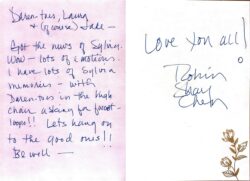 Daren-toes, Laura
+ (of course) Jade —
Got the news of Sylvia.
Wow — lots of emotions.
I have lots of Sylvia
memories — with
Daren-toes in the high
chair asking for froot-
loops!! Lets hang on
to the good ones!!
Be well —
Love you all!
Robin